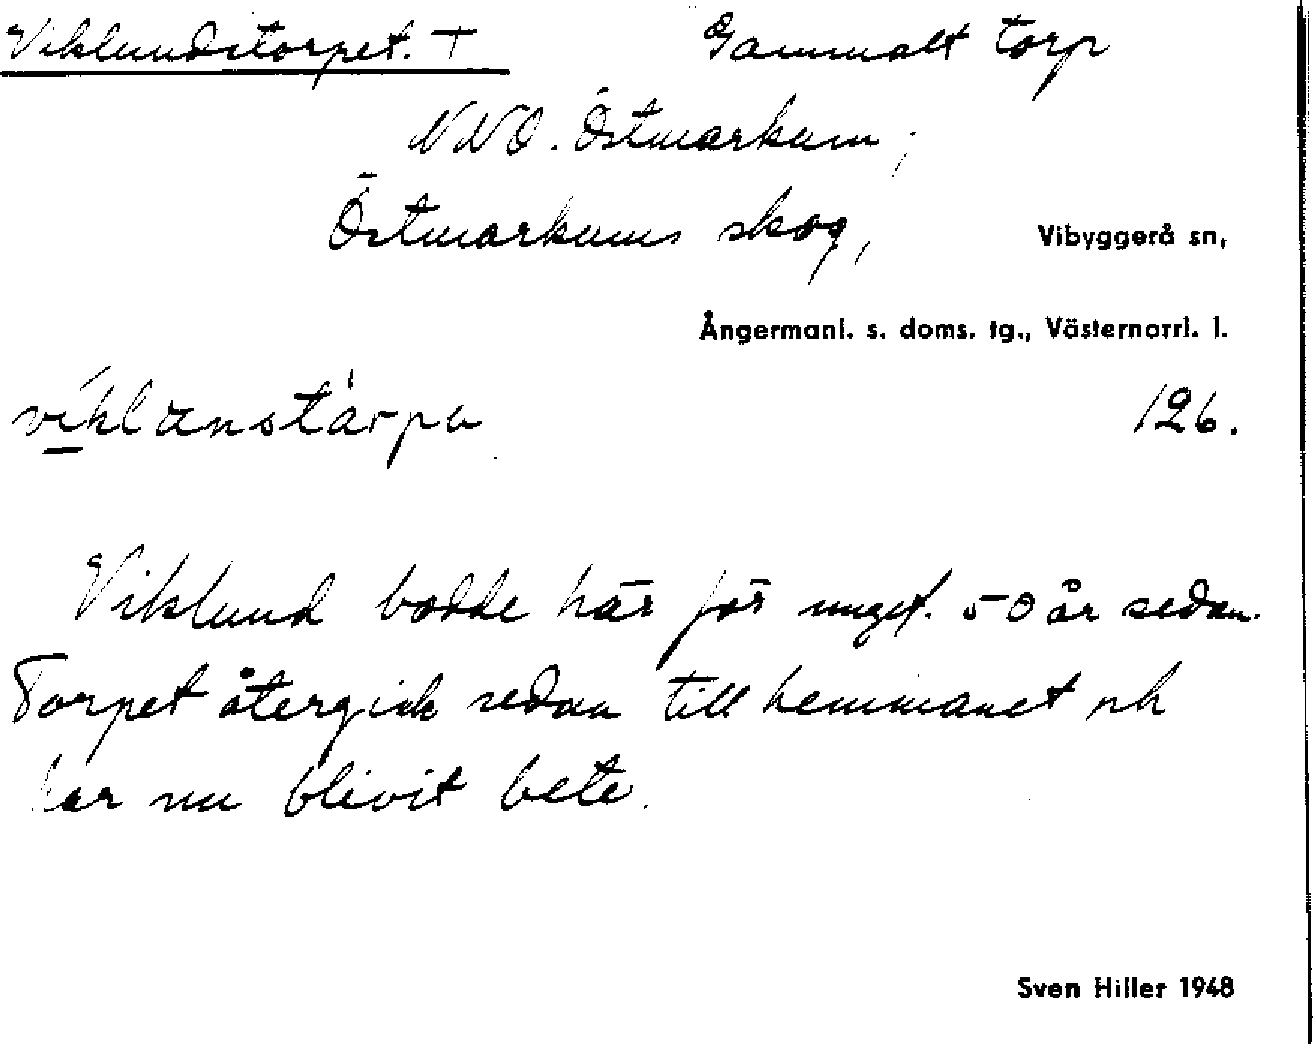 Viklundstorpet. + Gammalt torp
NNO. Östmarkum,
Östmarkums skog, Vibyggerå sn,
Ångermanl. s. doms. tg., Västernorrl. l.
viklanstårpa 126.
Viklund bodde här för ungef. 50 år sedan.
Torpet återgick sedan till hemmanet och
har nu blivit bete.
Sven Hiller 1948